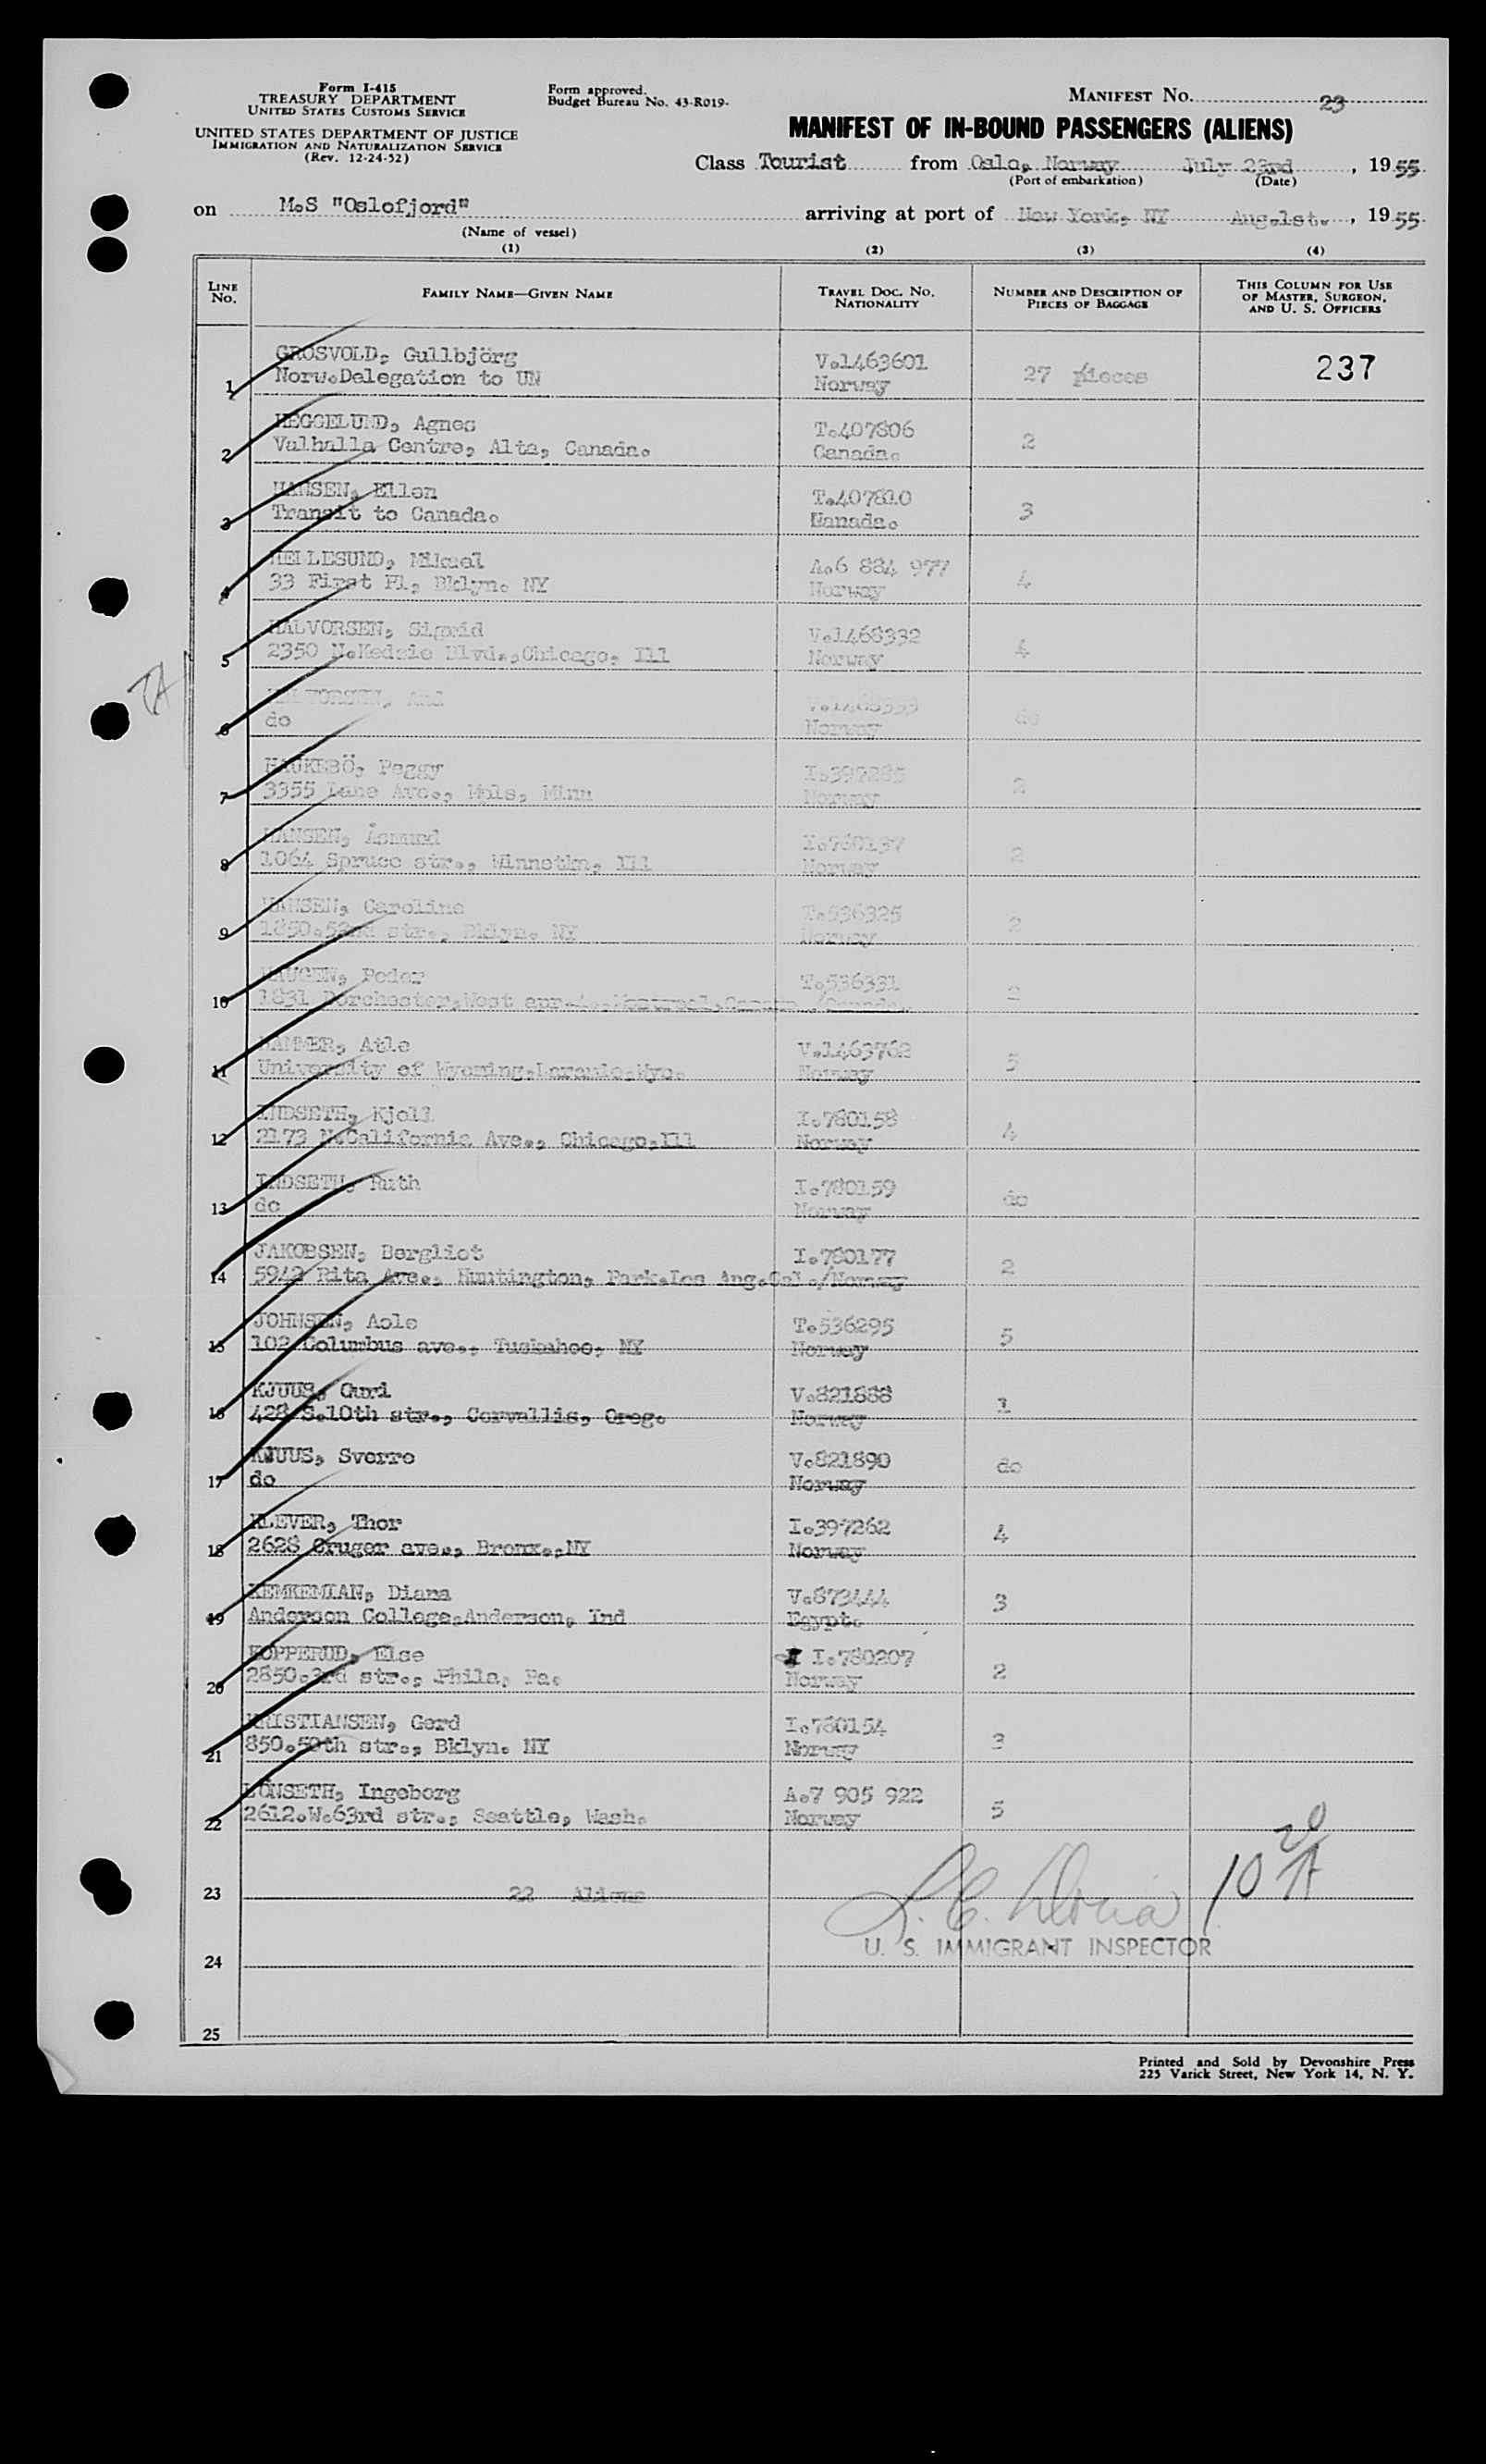 Form I-415
TREASURY DEPARTMENT
UNITED STATES CUSTOMS SERVICE
UNITED STATES DEPARTMENT OF JUSTICE
IMMIGRATION AND NATURALIZATION SERVICE
(Rev. 12-24-52)
Form approved.
Budget Bureau No. 43-R019-
MANIFEST No. 23
MANIFEST OF IN-BOUND PASSENGERS (ALIENS)
Class Tourist from Oslo, Norway July 23rd, 1955
(Port of embarkation) (Date)
on M.S "Oslofjord" arriving at port of New York, NY Aug.1st., 1955
(Name of vessel)
(1) (2) (3) (4)
LINE No. FAMILY NAME—GIVEN NAME TRAVEL DOC. NO. NATIONALITY NUMBER AND DESCRIPTION OF PIECES OF BAGGAGE THIS COLUMN FOR USE OF MASTER, SURGEON, AND U. S. OFFICERS
GROSVOLD, Gullbjörg V.1463601
1 Norw.Delegation to UN Norway 27 pieces 237
HEGGELUND, Agnes T.407806
2 Valhalla Centre, Alta, Canada. Canada. 2
HANSEN, Ellen T.407810
3 Transit to Canada. Canada. 3
HELLESUND, Mikael A.6 884 977
4 33 First Pl, Bklyn. NY Norway 4
HALVORSEN, Sigrid V.1468332
5 2350 N.Kedzie Blvd.,Chicago, Ill Norway 4
HALVORSEN, V.1468333
6 do Norway do
HAUKEBÖ, Peggy I.397285
7 3355 Ave., Mpls, Minn Norway 2
HANSEN, Åsmund I.780137
8 1064 Spruce str., Winnetka, Ill Norway 2
HANSEN, Caroline T.536325
9 1850.52nd str., Bklyn. NY Norway 2
HAUGEN, Peder T.536331
10 1831 Dorchester,West apr.4.,Montreal,Canada./Canada. 2
HAMMER, Atle V.1463762
11 University of Wyoming,Laramie,Wyo. Norway 5
INDSETH, Kjell I.780158
12 2173 N.California Ave., Chicago,Ill Norway 4
INDSETH, Ruth I.780159
13 do Norway do
JAKOBSEN, Bergliot I.780177
14 5942 Rita Ave., Huntington, Park.Los Ang.Cal./Norway 2
JOHNSEN, Aole T.536295
15 102 Columbus ave., Tuckahoe, NY Norway 5
KJUUS, Guri V.821888
16 428 S.10th str., Corvallis, Oreg. Norway 1
KJUUS, Sverre V.821890
17 do Norway do
KLEVER, Thor I.397262
18 2628 Cruger ave., Bronx.,NY Norway 4
KEMKEMIAN, Diana V.873444
19 Anderson College,Anderson, Ind Egypt. 3
KOPPERUD, Else I.780207
20 2850.3rd str., Phila, Pa. Norway 2
KRISTIANSEN, Gerd I.780154
21 850.50th str., Bklyn. NY Norway 3
LÖNSETH, Ingeborg A.7 905 922
22 2612.W.63rd str., Seattle, Wash. Norway 5
23 22 Aliens
U. S. IMMIGRANT INSPECTOR
24
25
Printed and Sold by Devonshire Press
225 Varick Street, New York 14, N. Y.